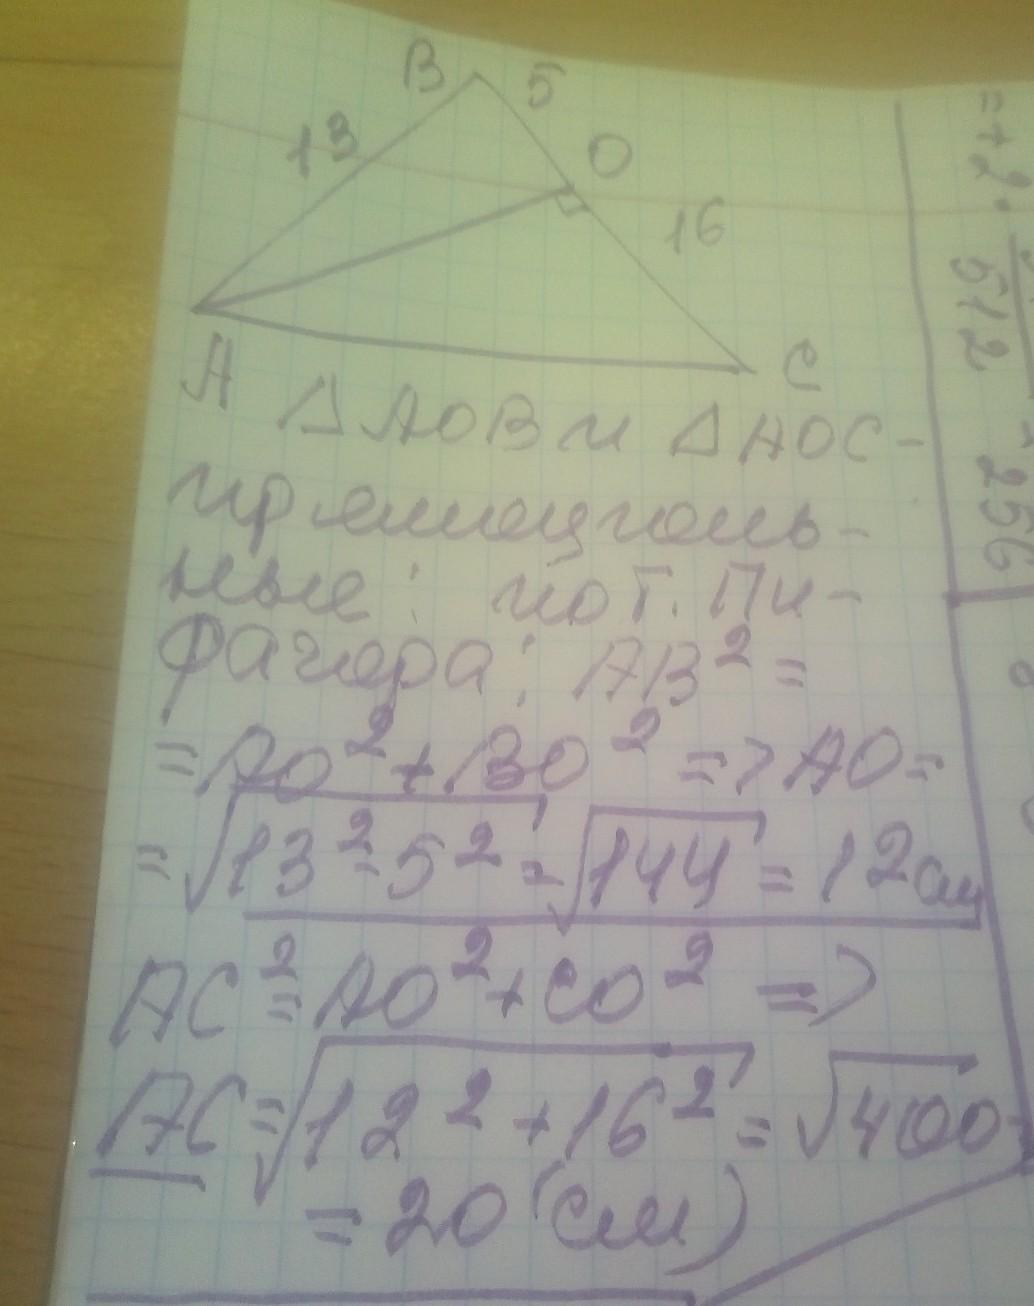 B 5
13
O
16
A
C
Δ AOB и Δ AOC -
прямоуголь-
ные: по т. Пи-
фагора: AB² =
= AO² + BO² => AO =
= √13² - 5² = √144 = 12 см
AC² = AO² + CO² =>
AC = √12² + 16² = √400 =
= 20 (см)
= +2.
512
256